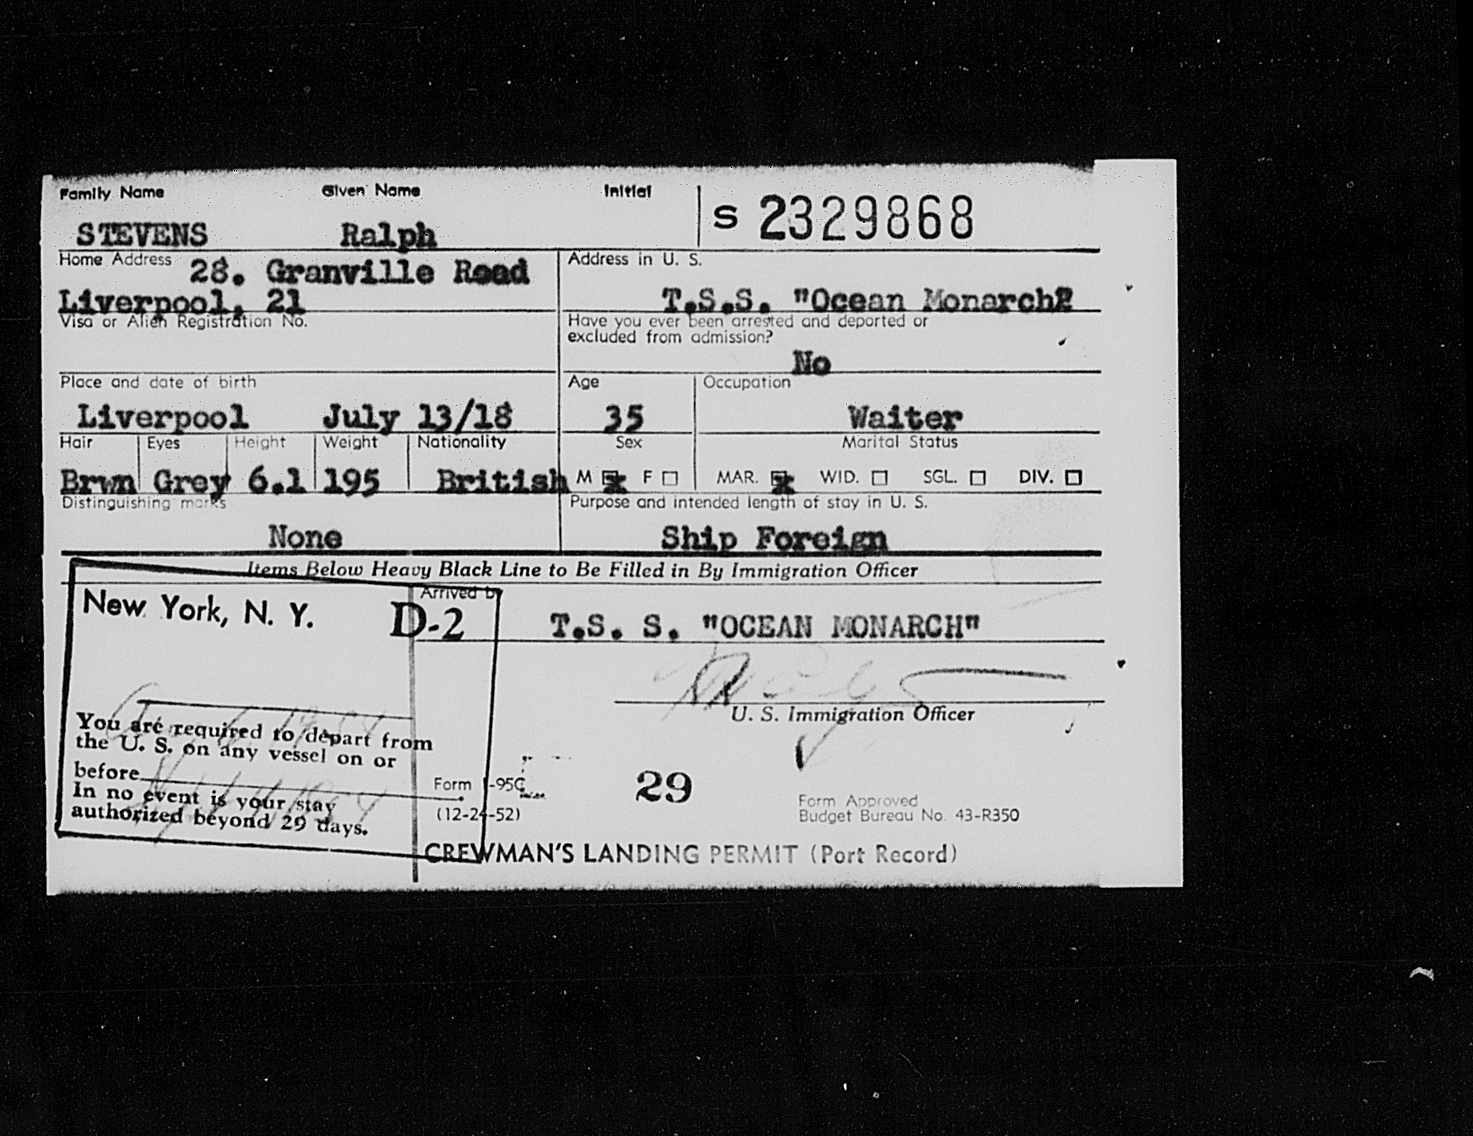 Family Name Given Name Initial
S 2329868
STEVENS Ralph
Home Address 28. Granville Road
Liverpool, 21
Address in U. S.
T.S.S. "Ocean Monarch2
Visa or Alien Registration No.
Have you ever been arrested and deported or
excluded from admission?
No
Place and date of birth
Liverpool July 13/18
Age
35
Occupation
Waiter
Hair Eyes Height Weight Nationality
Brwn Grey 6.1 195 British
Sex
M F
Marital Status
MAR. WID. SGL. DIV.
Distinguishing marks
None
Purpose and intended length of stay in U. S.
Ship Foreign
Items Below Heavy Black Line to Be Filled in By Immigration Officer
New York, N. Y. D-2
Arrived by
T.S. S. "OCEAN MONARCH"
U. S. Immigration Officer
You are required to depart from
the U. S. on any vessel on or
before
In no event is your stay
authorized beyond 29 days.
Form I-95C
(12-24-52)
29
Form Approved
Budget Bureau No. 43-R350
CREWMAN'S LANDING PERMIT (Port Record)